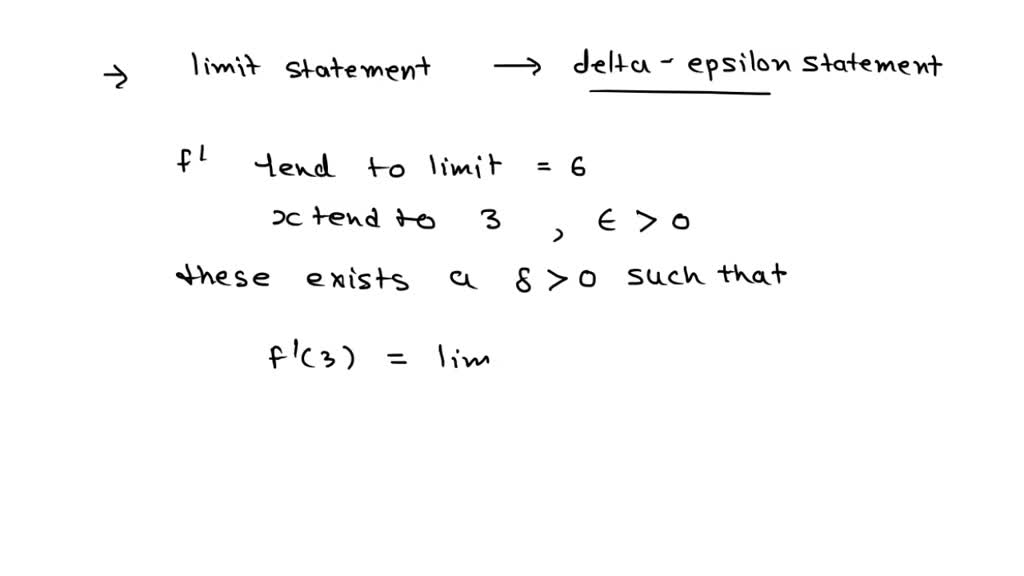 → limit statement → delta - epsilon statement
f' tend to limit = 6
x tend to 3 , ϵ > 0
these exists a δ > 0 such that
f'(3) = lim